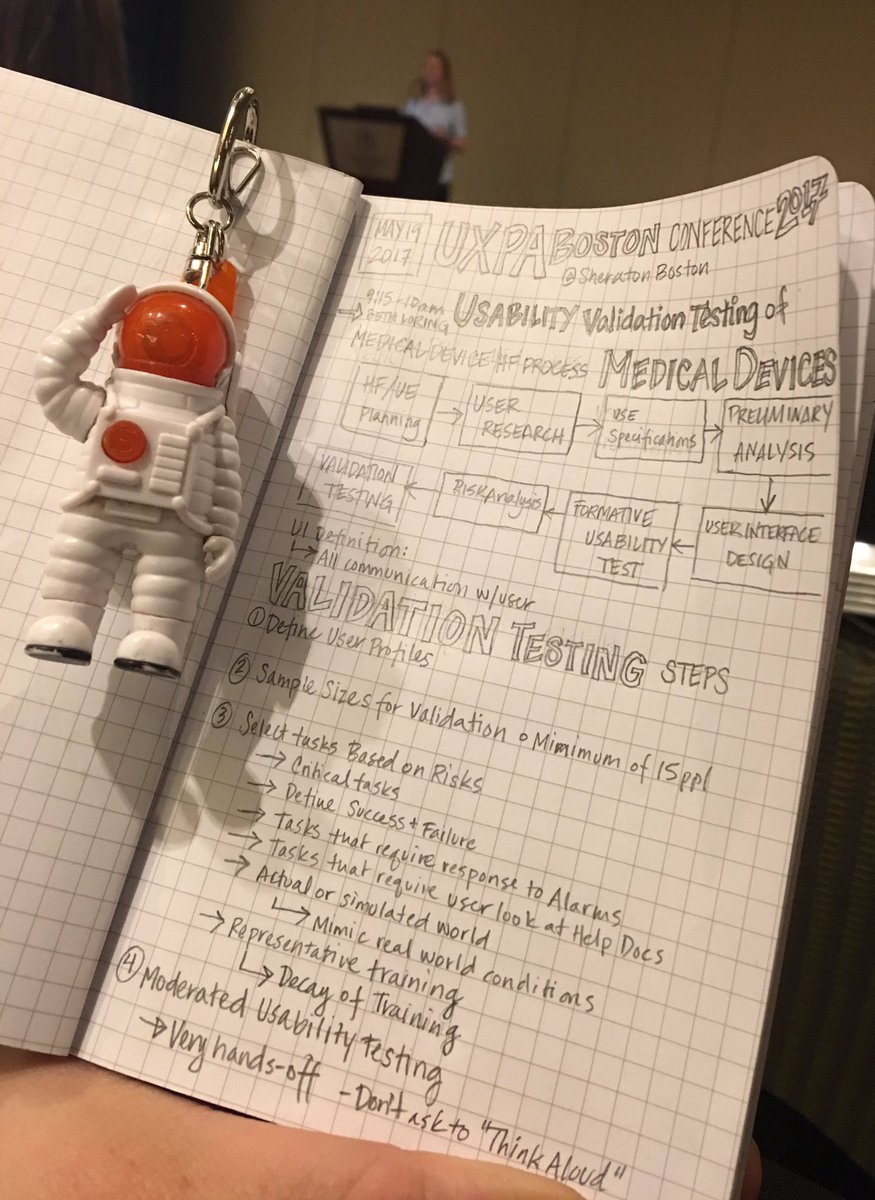 MAY 19
2017
UXPA BOSTON CONFERENCE 2017
@Sheraton Boston
9:15-10am
BETH LORING
USABILITY Validation Testing of
MEDICAL DEVICES
MEDICAL DEVICE HF PROCESS
HF/UE
Planning
USER
RESEARCH
USE
Specifications
PRELIMINARY
ANALYSIS
USER INTERFACE
DESIGN
FORMATIVE
USABILITY
TEST
RISK Analysis
VALIDATION
TESTING
UI Definition:
↳ All communication w/user
VALIDATION TESTING STEPS
① Define User Profiles
② Sample Sizes for Validation o Mimimum of 15 ppl
③ Select tasks Based on Risks
→ Critical tasks
→ Define Success + Failure
→ Tasks that require response to Alarms
→ Tasks that require user look at Help Docs
→ Actual or simulated world
↳ Mimic real world conditions
→ Representative training
↳ Decay of Training
④ Moderated Usability Testing
→ Very hands-off - Don't ask to "Think Aloud"